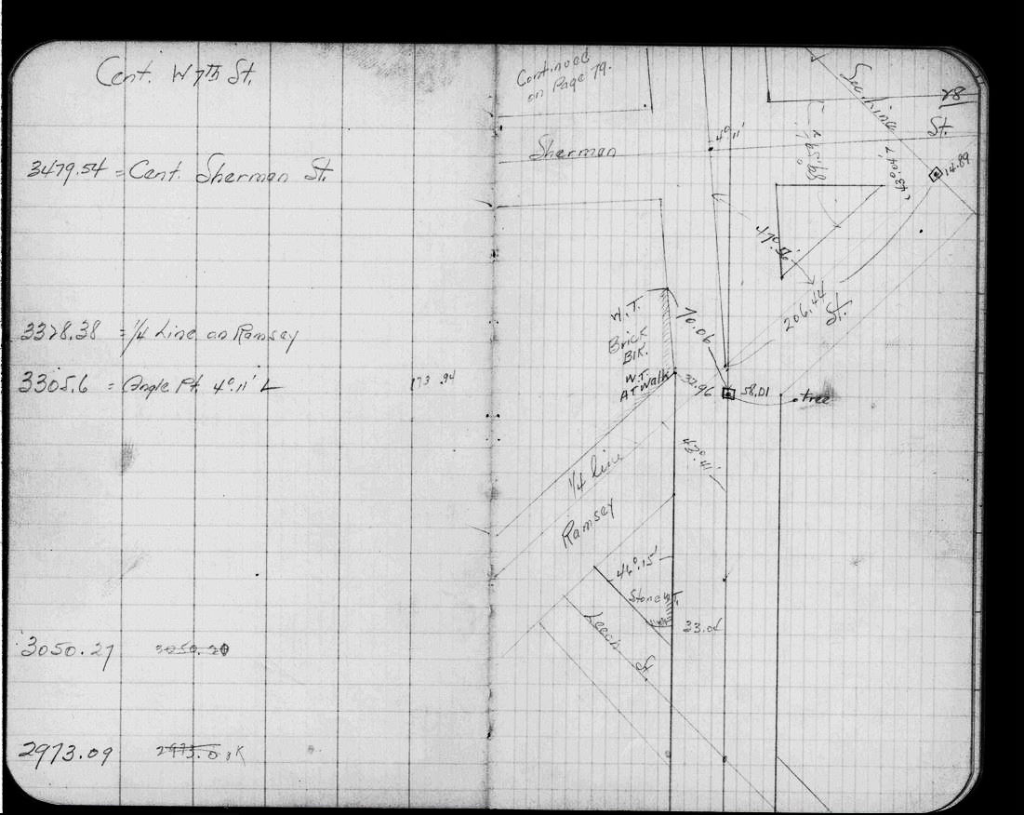 Cent. W 7th St.
3479.54 = Cent. Sherman St.
3378.38 = 1/4 Line on Ramsey
3305.6 = Angle Pt 4°.11' L
173.94
3050.27 3050.20
2973.09 2973.0
Continued
on Page 79.
78
Sec. line
St.
4°11'
Sherman
14.89
47°.56'
206.44
St.
W.T.
Brick
Blk.
W.T.
AT Walk
70.06
32.96
58.01
tree
1/4 line
Ramsey
46°.15'
Stone W.T.
Leech St.